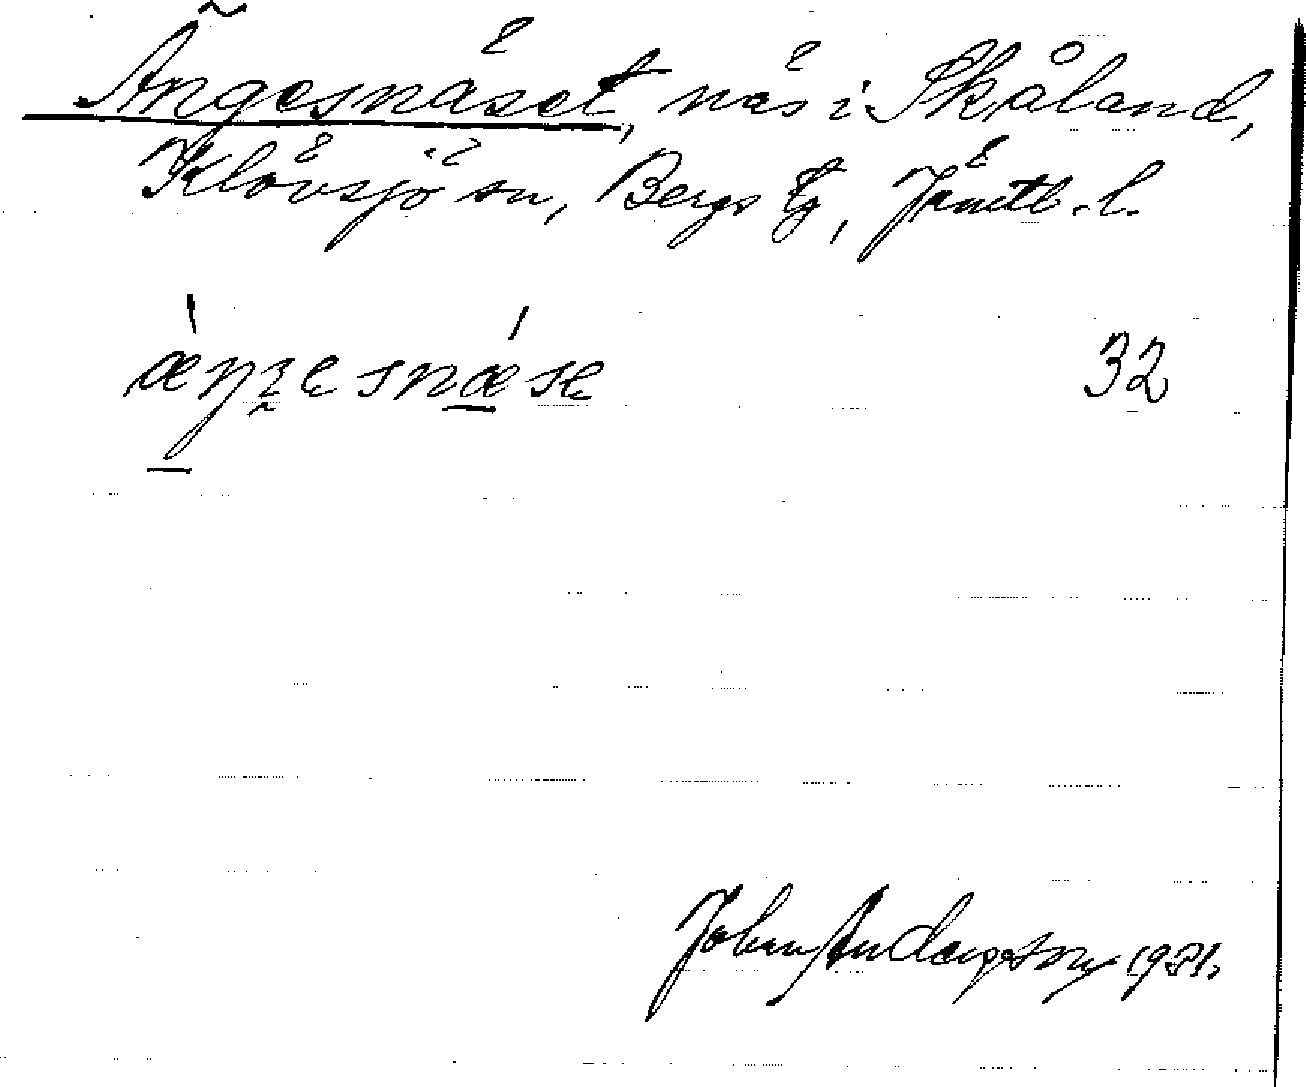 Ängesnäset, näs i Skåland,
Klövsjö sn, Bergs tg, Jämtl. l.
32
Johan Anderson 1931.